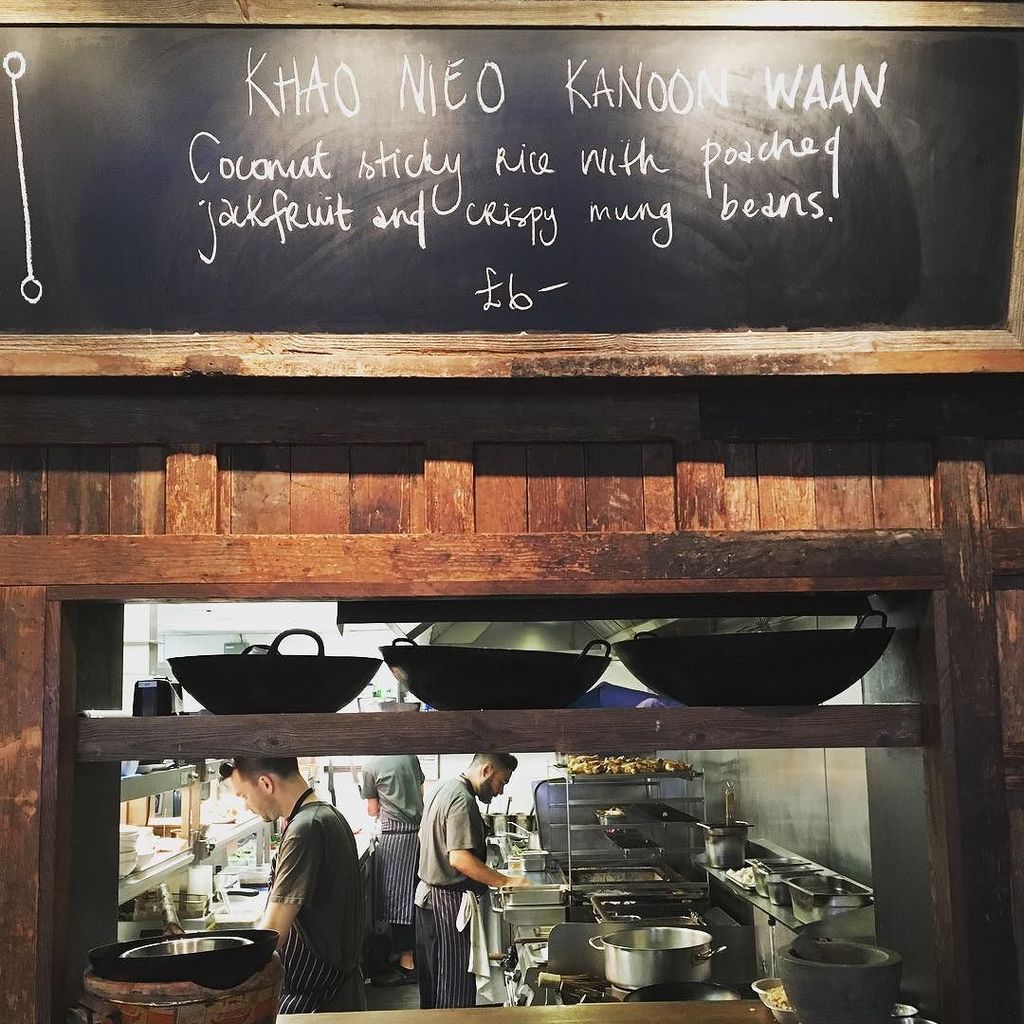 KHAO NIEO KANOON WAAN
Coconut sticky rice with poached
jackfruit and crispy mung beans.
£6-